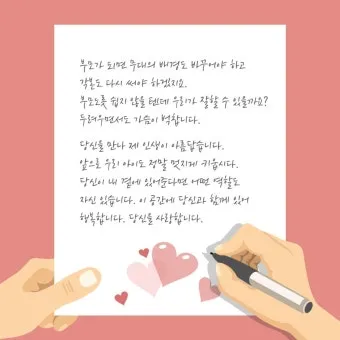 부모가 되면 무대의 배경도 바꾸어야 하고
각본도 다시 써야 하겠지요.
부모노릇 쉽지 않을 텐데 우리가 잘할 수 있을까요?
두려우면서도 가슴이 벅찹니다.
당신을 만나 제 인생이 아름답습니다.
앞으로 우리 아이도 정말 멋지게 키웁시다.
당신이 내 곁에 있어준다면 어떤 역할도
자신 있습니다. 이 공간에 당신과 함께 있어
행복합니다. 당신을 사랑합니다.